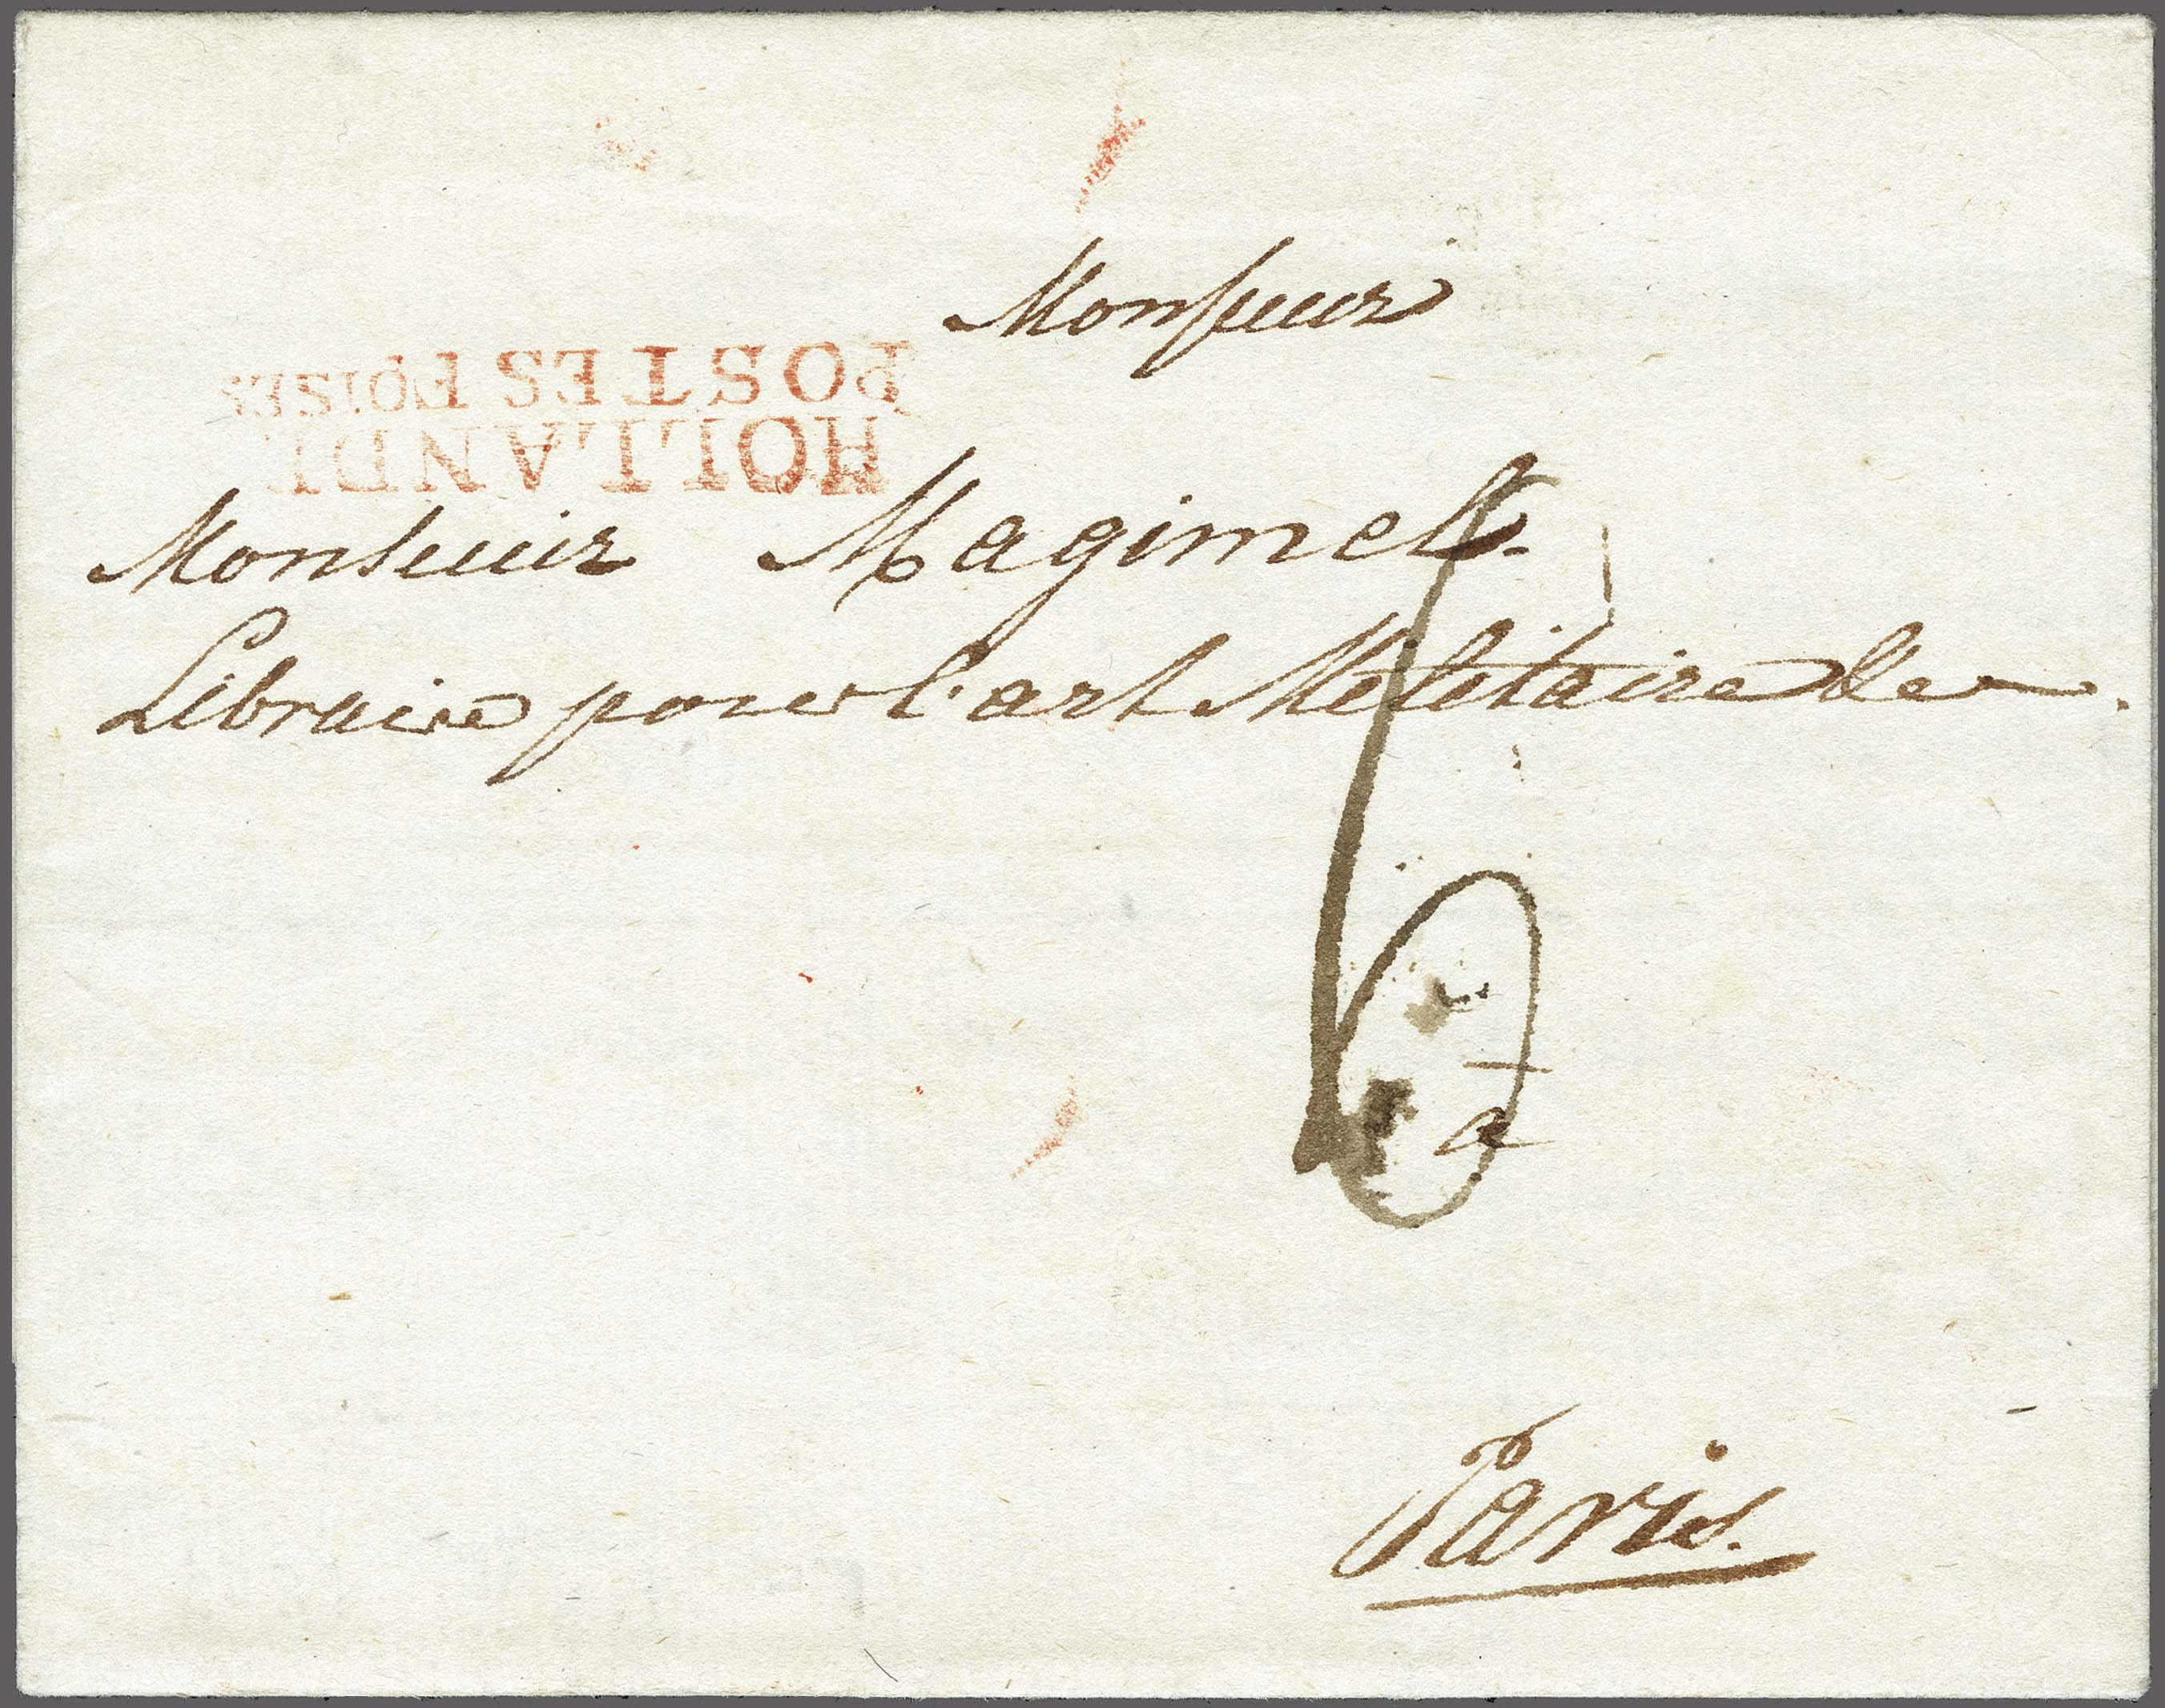 Monsieur
HOLLANDE
POSTES FOISES
Monsieur Magimel
Libraire pour l'art Militaire &e
6
a
Paris.